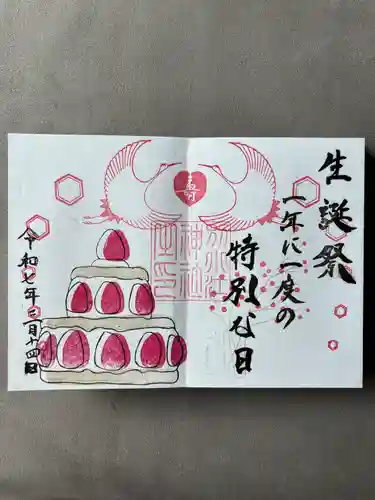 生誕祭
一年に一度の
特別な日
寿
神社
令和七年三月十四日